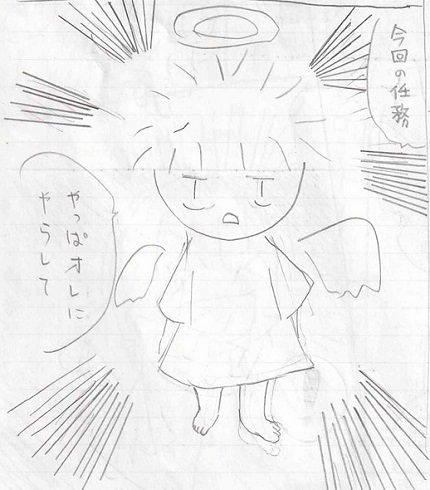 今回の任務
やっぱオレに
やらして